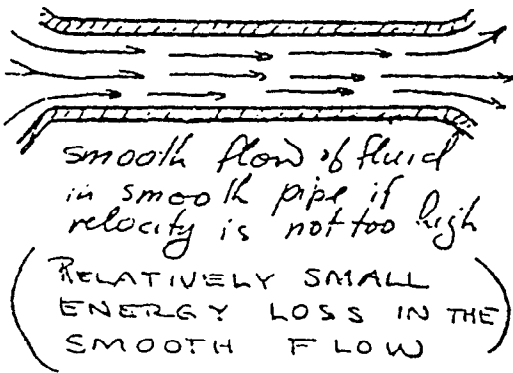 smooth flow of fluid
in smooth pipe if
velocity is not too high
(RELATIVELY SMALL
ENERGY LOSS IN THE
SMOOTH FLOW)